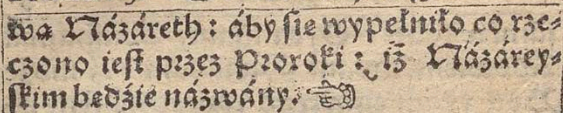 wa Názáreth: áby sie wypełniło co rze-
czono iest przez Proroki: iż Názárey-
skim będźie názwány. ☜